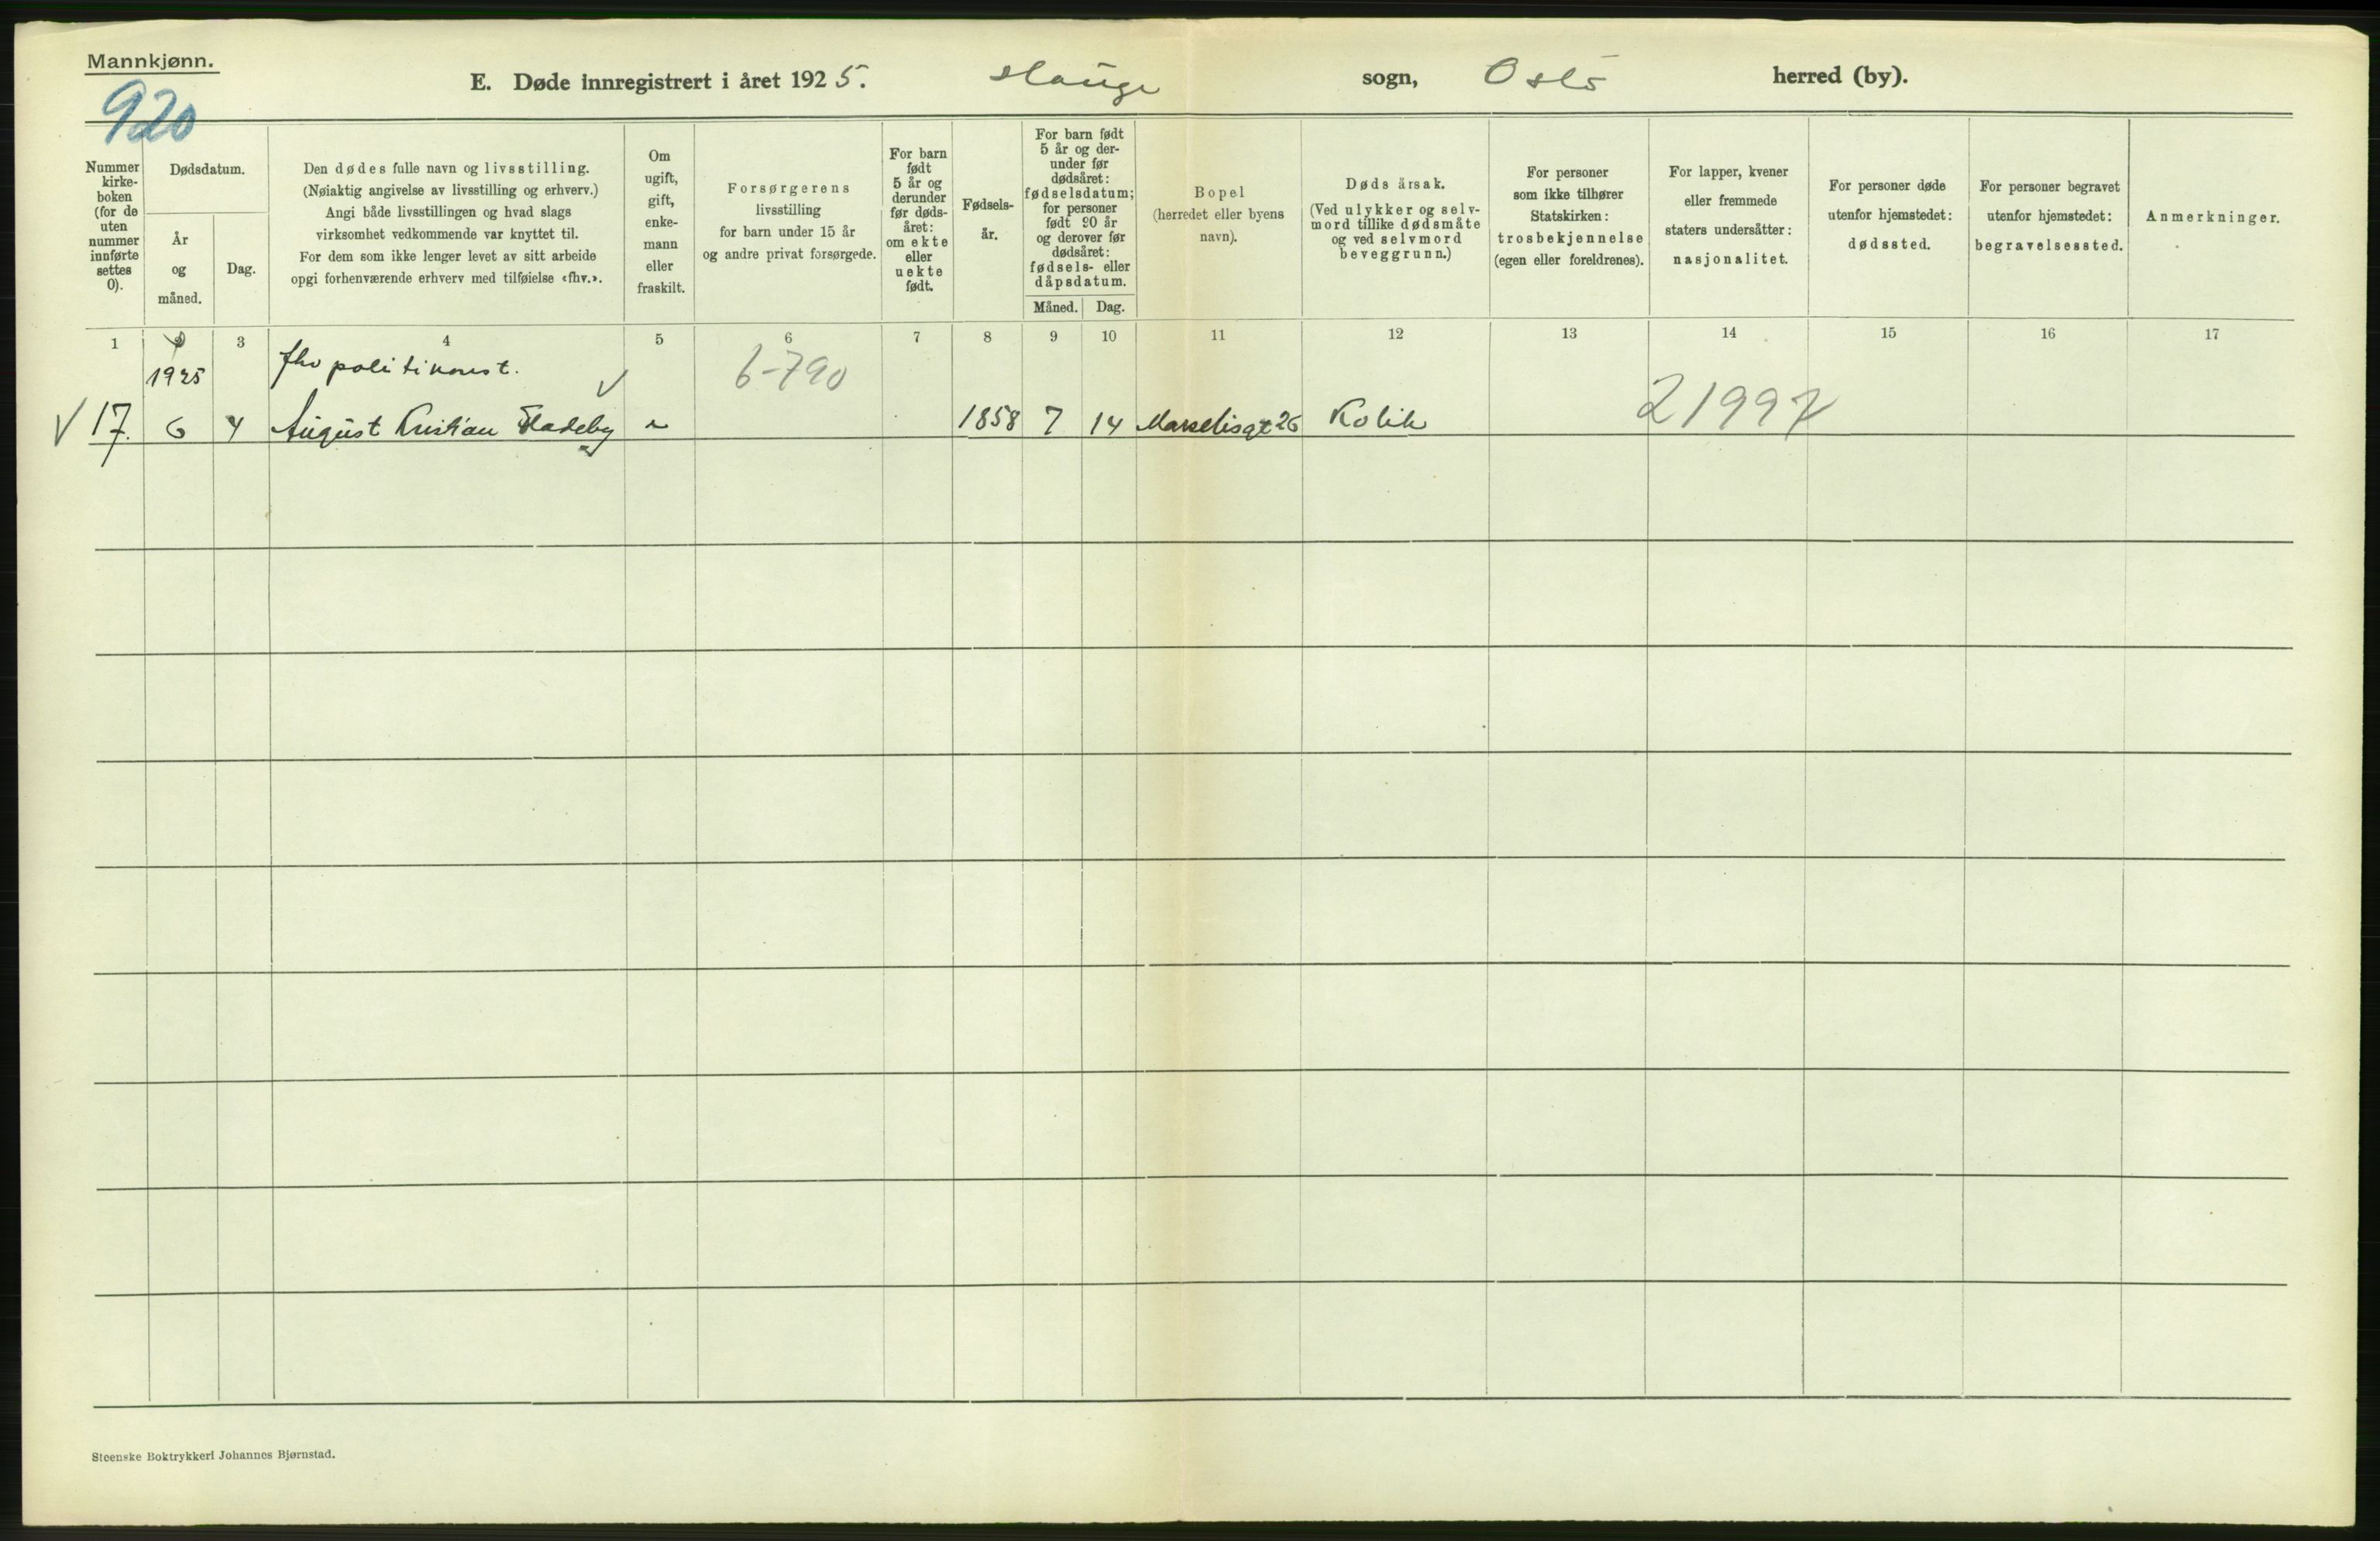 Mannkjønn.
920
E. Døde innregistrert i året 1925. Hauge sogn, Oslo herred (by).
Nummer kirke-boken (for de uten nummer innførte settes 0).
Dødsdatum.
År og måned.
Dag.
Den dødes fulle navn og livsstilling.
(Nøiaktig angivelse av livsstilling og erhverv.)
Angi både livsstillingen og hvad slags
virksomhet vedkommende var knyttet til.
For dem som ikke lenger levet av sitt arbeide
opgi forhenværende erhverv med tilføielse «fhv.».
Om
ugift,
gift,
enke-
mann
eller
fraskilt.
Forsørgerens
livsstilling
for barn under 15 år
og andre privat forsørgede.
For barn
født
5 år og
derunder
før døds-
året:
om ekte
eller
uekte
født.
Fødsels-
år.
For barn født
5 år og der-
under før
dødsåret:
fødselsdatum;
for personer
født 90 år
og derover før
dødsåret:
fødsels- eller
dåpsdatum.
Måned. Dag.
Bopel
(herredet eller byens
navn).
Døds årsak.
(Ved ulykker og selv-
mord tillike dødsmåte
og ved selvmord
beveggrunn.)
For personer
som ikke tilhører
Statskirken:
trosbekjennelse
(egen eller foreldrenes).
For lapper, kvener
eller fremmede
staters undersåtter:
nasjonalitet.
For personer døde
utenfor hjemstedet:
dødssted.
For personer begravet
utenfor hjemstedet:
begravelsessted.
Anmerkninger.
1 3 4 5 6 7 8 9 10 11 12 13 14 15 16 17
1925 fhv politikonst. 6-790
17. 6 4 August Kristian 1858 7 14 Marselisgt 26 Kolik 21997
Steenske Boktrykkeri Johannes Bjørnstad.